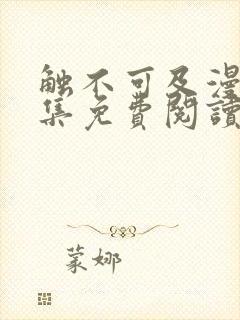 触不可及漫
集免費閱讀
蒙娜